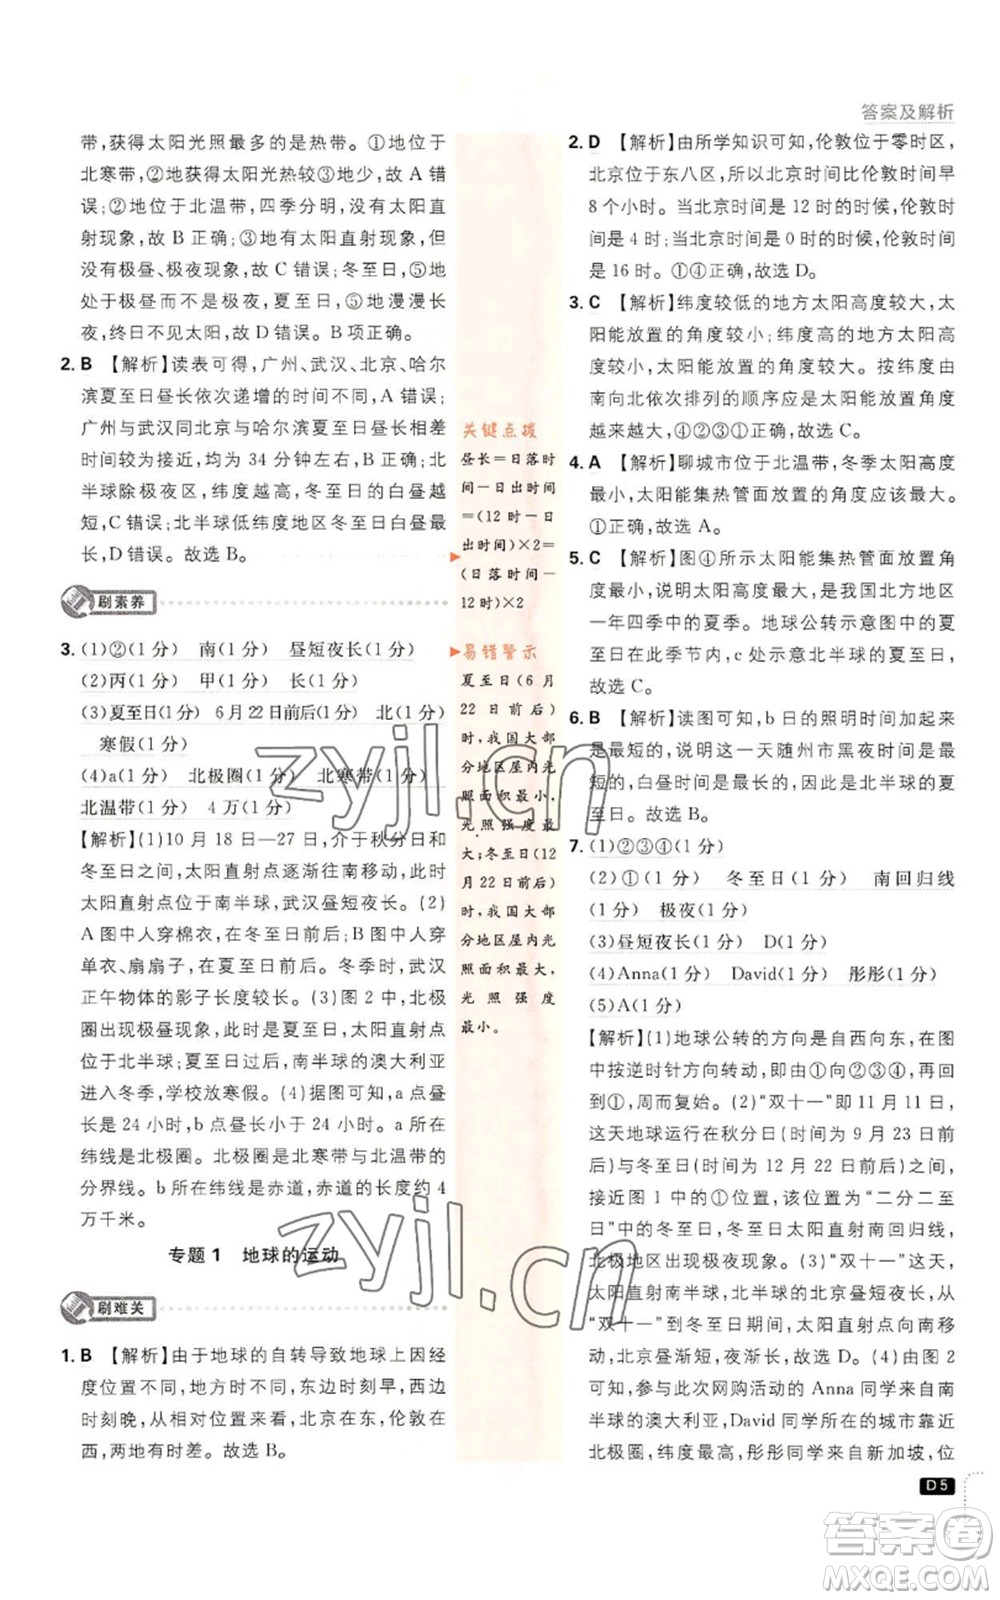 答案及解析
带,获得太阳光照最多的是热带。①地位于
北寒带,②地获得太阳光热较③地少,故 A 错
误;②地位于北温带,四季分明,没有太阳直
射现象,故 B 正确;③地有太阳直射现象,但
没有极昼、极夜现象,故 C 错误;冬至日,⑤地
处于极昼而不是极夜,夏至日,⑤地漫漫长
夜,终日不见太阳,故 D 错误。B 项正确。
2. B 【解析】读表可得,广州、武汉、北京、哈尔
滨夏至日昼长依次递增的时间不同,A 错误;
广州与武汉同北京与哈尔滨夏至日昼长相差
时间较为接近,均为 34 分钟左右,B 正确;北
半球除极夜区,纬度越高,冬至日白昼越
短,C 错误;北半球低纬度地区冬至日白昼最
长,D 错误。故选 B。
刷素养
3. (1)②(1 分) 南(1 分) 昼短夜长(1 分)
(2)丙(1 分) 甲(1 分) 长(1 分)
(3)夏至日(1 分) 6 月 22 日前后(1 分) 北(1 分)
寒假(1 分)
(4)a(1 分) 北极圈(1 分) 北寒带(1 分)
北温带(1 分) 4 万(1 分)
【解析】(1)10 月 18 日—27 日,介于秋分日和
冬至日之间,太阳直射点逐渐往南移动,此时
太阳直射点位于南半球,武汉昼短夜长。(2)
A 图中人穿棉衣,在冬至日前后;B 图中人穿
单衣、扇扇子,在夏至日前后。冬季时,武汉
正午物体的影子长度较长。(3)图 2 中,北极
圈出现极昼现象,此时是夏至日,太阳直射点
位于北半球。夏至日过后,南半球的澳大利亚
进入冬季,学校放寒假。(4)据图可知,a 点昼
长是 24 小时,b 点昼长是 12 小时。a 所在
纬线是北极圈,北极圈是北寒带与北温带的
分界线。b 所在纬线是赤道,赤道的长度约 4
万千米。
专题 1 地球的运动
刷难关
1. B 【解析】由于地球的自转导致地球上因经
度位置不同,地方时不同,东边时刻早,西边
时刻晚,从相对位置来看,北京在东,伦敦在
西,两地有时差。故选 B。
关键点拨
昼长=日落时
间-日出时间
=(12 时-日
出时间)×2=
(日落时间-
12 时)×2
易错警示
夏至日(6 月
22 日前后)
时,我国大部
分地区屋内光
照面积最小,
光照强度最
大;冬至日(12
月 22 日前后)
时,我国大部
分地区屋内光
照面积最大,
光照强度
最小。
2. D 【解析】由所学知识可知,伦敦位于零时区,
北京位于东八区,所以北京时间比伦敦时间早
8 个小时。当北京时间是 12 时的时候,伦敦时
间是 4 时;当北京时间是 0 时的时候,伦敦时
间是 16 时。①④正确,故选 D。
3. C 【解析】纬度较低的地方太阳高度较大,太
阳能放置的角度较小;纬度高的地方太阳高
度较小,太阳能放置的角度较大。按纬度由
南向北依次排列的顺序应是太阳能放置角度
越来越大,④②③①正确。故选 C。
4. A 【解析】聊城市位于北温带,冬季太阳高度
最小,太阳能集热管面放置的角度应该最大。
①正确,故选 A。
5. C 【解析】图④所示太阳能集热管面放置角度
最小,此时太阳高度最大,是我国北方地区
一年四季中的夏季。地球公转示意图中的夏
至日时,地轴北端朝向太阳,北半球获得太阳
光热最多。读图可知,c 示意北半球的夏至日,
故选 C。
6. B 【解析】读图可知,b 日的照明时间加起来
是最短的,说明这一天随州市黑夜时间是最
短的,白昼时间是最长的,此日是北半球的夏
至日。故选 B。
7. (1)②③④(1 分)
(2)①(1 分) 冬至日(1 分) 南回归线
(1 分) 极夜(1 分)
(3)昼短夜长(1 分) D(1 分)
(4)Anna(1 分) David(1 分) 彤彤(1 分)
(5)A(1 分)
【解析】(1)地球公转的方向是自西向东,在图
中按逆时针方向转动,即由①向②③④,再转
回到①,周而复始。(2)“双十一”即 11 月 11 日,
这天地球运行在秋分日(时间为 9 月 23 日前
后)与冬至日(时间为 12 月 22 日前后)之间,
接近图 1 中的①位置,该位置为“二分二至
日”中的冬至日,冬至日太阳直射南回归线,
北极地区出现极夜现象。(3)“双十一”这天,
太阳直射南半球,此时的北京昼短夜长,
从“双十一”到冬至日期间,太阳直射点继续向南
移动,北京昼渐短,夜渐长,故选 A。(4)由图 2
可知,参与此次网购活动的 Anna 同学来自南
半球的澳大利亚,David 同学所在的城市靠近
北极圈,纬度最高,彤彤同学来自新加坡,位
D5
zyjl.cn
zyjl.cn
答案圈
MXQE.COM